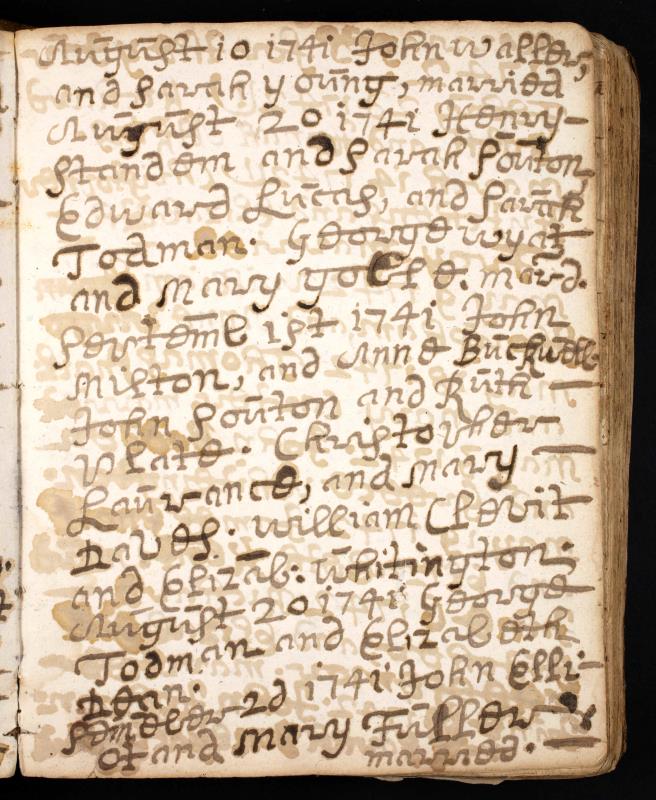 August 10 1741 John Waller,
and Sarah Young, married
August 20 1741 Henry-
Standem and Sarah Souton,
Edward Lucas, and Sarah
Todman. George Wyat
and Mary mard.
Septemb 1st 1741 John
Milton, and Anne Buckwell
John Souton and Ruth —
Plate. Christopher
Laurance, and Mary —
Daves. William Clevit
and Elizab: Whitington:
August 20 1741 George
Todman and Elizabeth
Dean.
2d 1741 John Elli-
ot and Mary Fuller
married. —